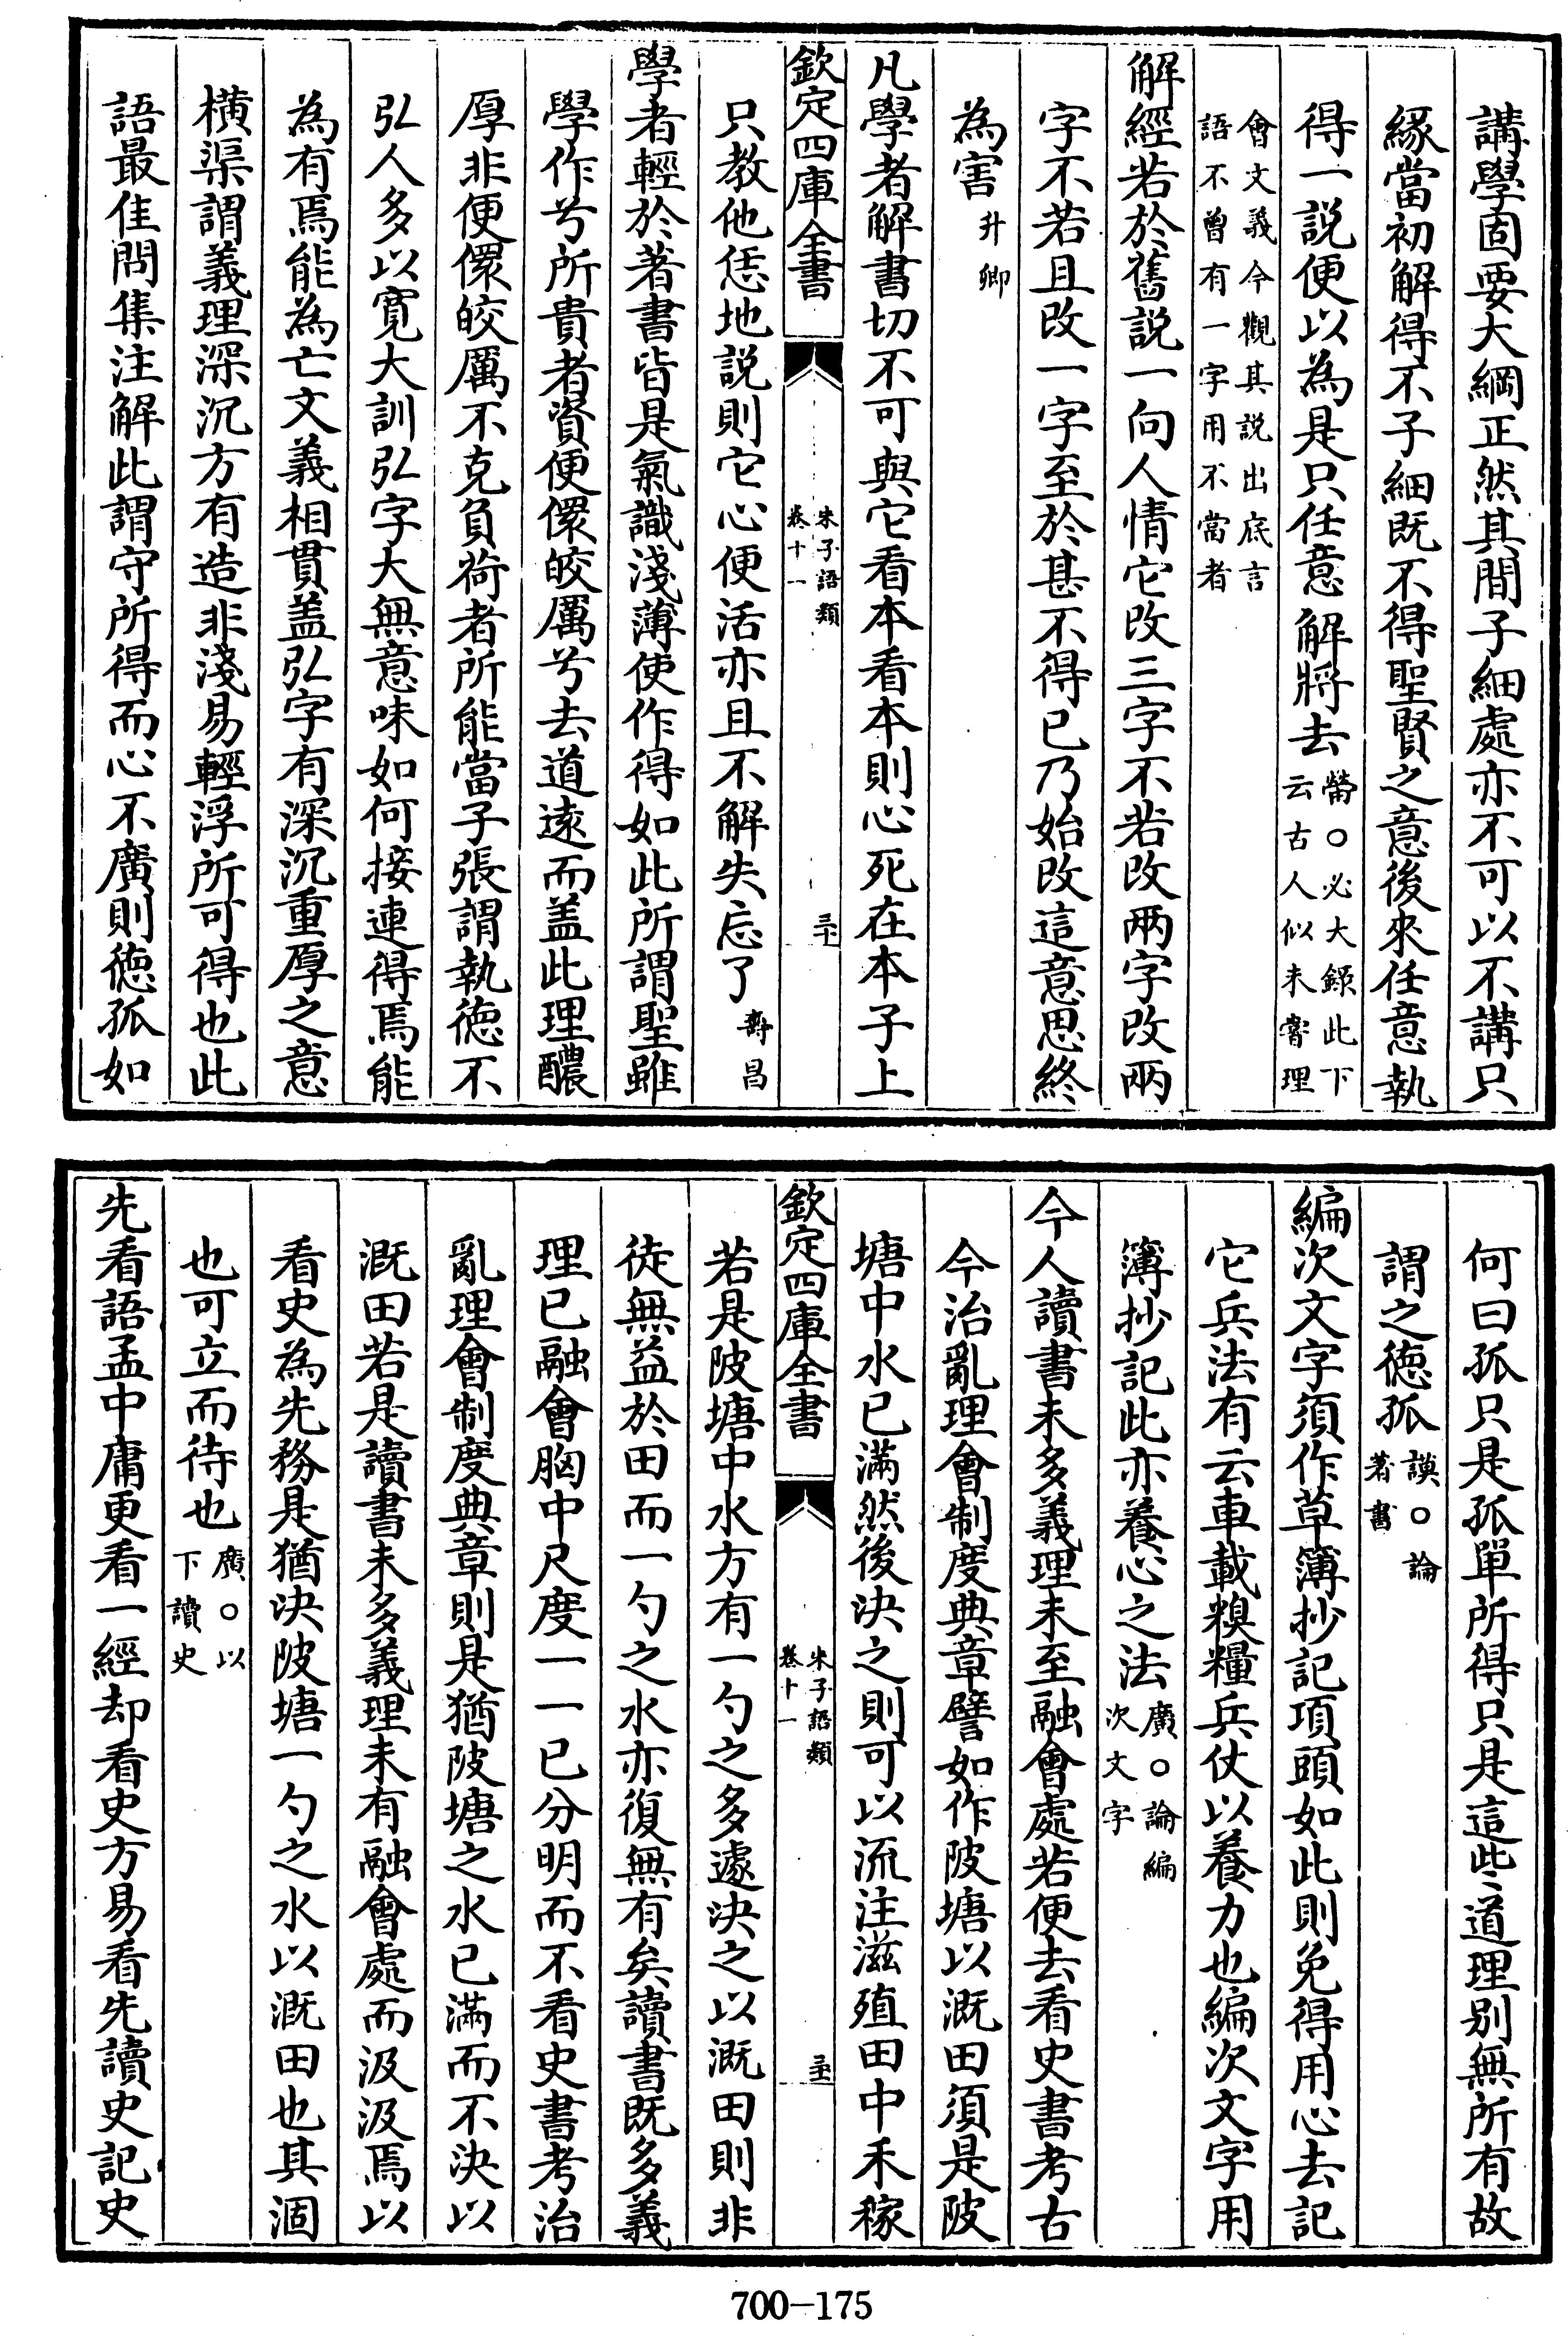 講學固要大綱正然其間子細處亦不可以不講只
緣當初解得不子細既不得聖賢之意後來任意執
得一説便以為是只任意解將去㽦○必大録此下
云古人似未嘗理
會文義今觀其説出底言
語不曾有一字用不當者
解經若於舊説一向人情它改三字不若改兩字改兩
字不若且改一字至於甚不得已乃始改這意思終
為害升卿
凡學者解書切不可與它看本看本則心死在本子上
欽定四庫全書
朱子語類
卷十一
三十
只教他恁地説則它心便活亦且不解失忘了壽昌
學者輕於著書皆是氣識淺薄使作得如此所謂聖雖
學作兮所貴者資便儇皎厲兮去道遠而蓋此理醲
厚非便儇皎厲不克負荷者所能當子張謂執徳不
弘人多以寛大訓弘字大無意味如何接連得焉能
為有焉能為亡文義相貫盖弘字有深沉重厚之意
橫渠謂義理深沉方有造非淺易輕浮所可得也此
語最佳問集注解此謂守所得而心不廣則徳孤如
何曰孤只是孤單所得只是這些道理别無所有故
謂之徳孤謨○論
著書
編次文字須作草簿抄記項頭如此則免得用心去記
它兵法有云車載糗糧兵仗以養力也編次文字用
簿抄記此亦養心之法廣○論編
次文字
今人讀書未多義理未至融會處若便去看史書考古
今治亂理會制度典章譬如作陂塘以溉田須是陂
塘中水已滿然後決之則可以流注滋殖田中禾稼
欽定四庫全書
朱子語類
卷十一
三十一
若是陂塘中水方有一勺之多遽決之以溉田則非
徒無益於田而一勺之水亦復無有矣讀書既多義
理已融會胸中尺度一一已分明而不看史書考治
亂理會制度典章則是猶陂塘之水已滿而不決以
溉田若是讀書未多義理未有融會處而汲汲焉以
看史為先務是猶決陂塘一勺之水以溉田也其涸
也可立而待也廣○以
下讀史
先看語孟中庸更看一經却看史方易看先讀史記史
700-175